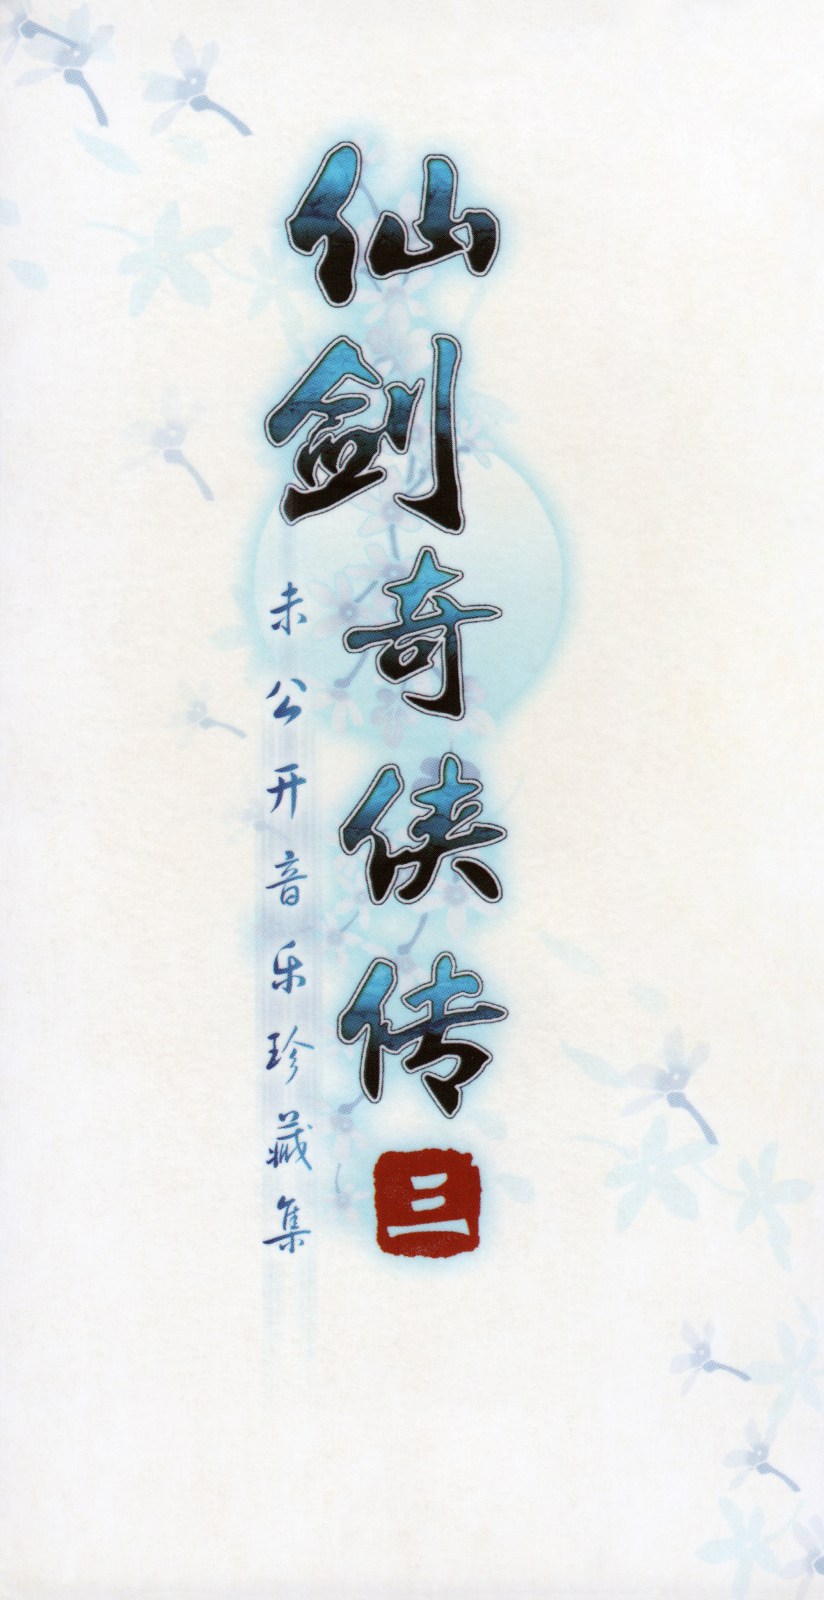 仙剑奇侠传三
未公开音乐珍藏集